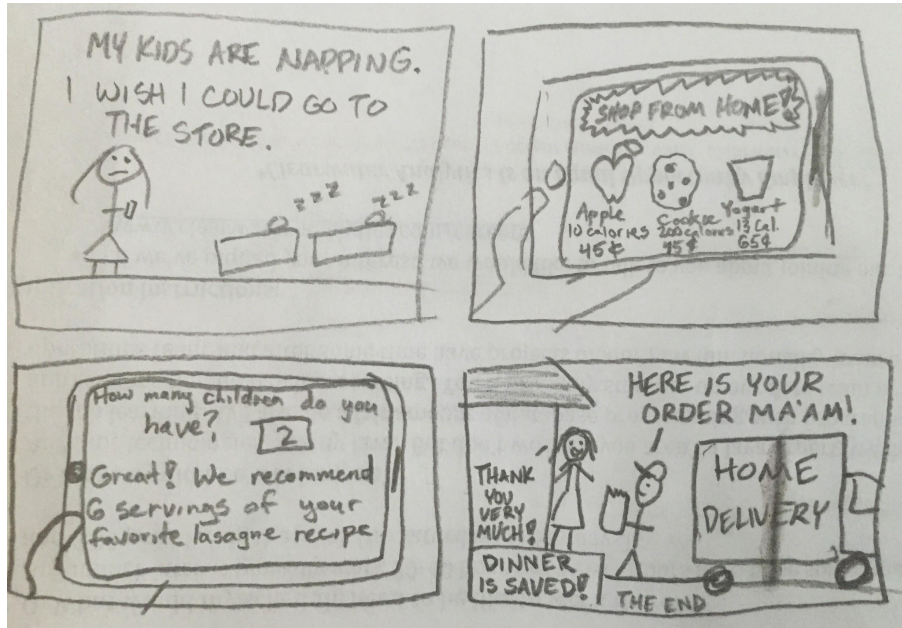 MY KIDS ARE NAPPING.
I WISH I COULD GO TO
THE STORE.
zzz
zzz
SHOP FROM HOME!
Apple
10 calories
45¢
Cookie
200 calories
95¢
Yogurt
13 Cal.
65¢
How many children do you
have?
2
Great! We recommend
6 servings of your
favorite lasagne recipe
HERE IS YOUR
ORDER MA'AM!
THANK
YOU
VERY
MUCH!
HOME
DELIVERY
DINNER
IS SAVED!
THE END